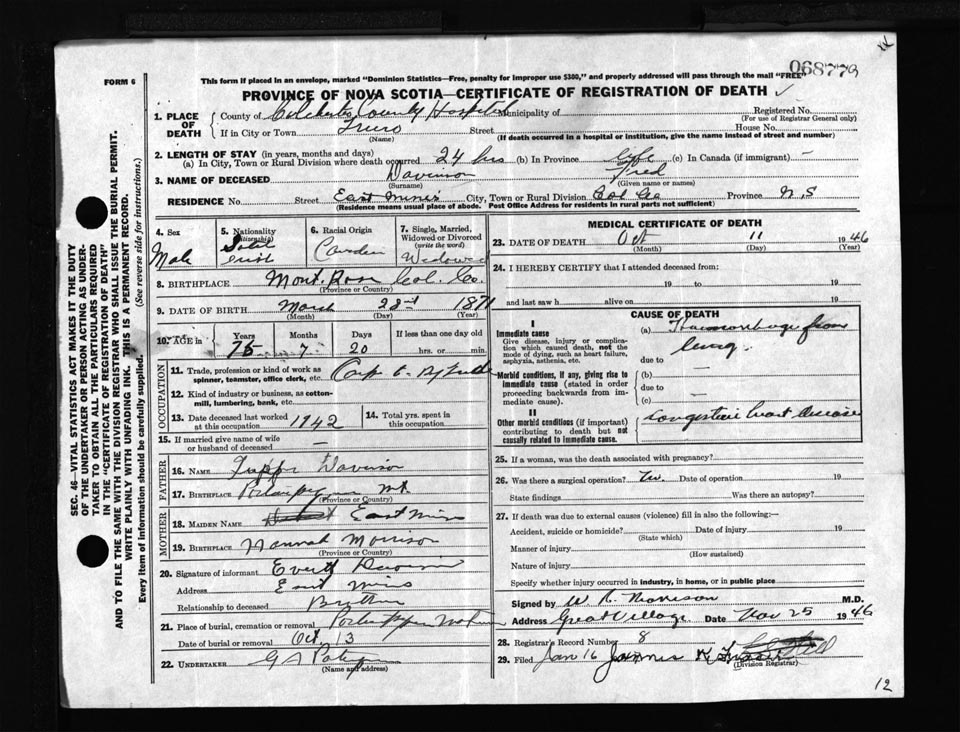 068773
FORM 6
This form if placed in an envelope, marked "Dominion Statistics—Free, penalty for improper use $380," and properly addressed will pass through the mail "FREE"
PROVINCE OF NOVA SCOTIA—CERTIFICATE OF REGISTRATION OF DEATH ✓
SEC. 46—VITAL STATISTICS ACT MAKES IT THE DUTY
OF THE UNDERTAKER OR PERSON ACTING AS UNDER-
TAKER TO OBTAIN ALL THE PARTICULARS REQUIRED
IN THE "CERTIFICATE OF REGISTRATION OF DEATH"
AND TO FILE THE SAME WITH THE DIVISION REGISTRAR WHO SHALL ISSUE THE BURIAL PERMIT.
WRITE PLAINLY WITH UNFADING INK. THIS IS A PERMANENT RECORD.
Every item of information should be carefully supplied. (See reverse side for instructions.)
1. PLACE OF DEATH County of Colchester County Hospital Municipality of Registered No.
(For use of Registrar General only)
If in City or Town Truro Street House No.
(Name) (If death occurred in a hospital or institution, give the name instead of street and number)
2. LENGTH OF STAY (in years, months and days)
(a) In City, Town or Rural Division where death occurred 24 hrs (b) In Province Life (c) In Canada (if immigrant) —
3. NAME OF DECEASED Davison Fred
(Surname) (Given name or names)
RESIDENCE No. Street East Mines City, Town or Rural Division Col Co Province N.S
(Residence means usual place of abode. Post Office Address for residents in rural parts not sufficient)
4. Sex Male
5. Nationality (Citizenship)
6. Racial Origin
7. Single, Married, Widowed or Divorced (write the word) Widowed
8. BIRTHPLACE Mont. Rose Col. Co.
(Province or Country)
9. DATE OF BIRTH March 22nd 1871
(Month) (Day) (Year)
10. AGE in Years 75 Months 7 Days 20 If less than one day old hrs. or min.
OCCUPATION
11. Trade, profession or kind of work as spinner, teamster, office clerk, etc.
12. Kind of industry or business, as cotton-mill, lumbering, bank, etc.
13. Date deceased last worked at this occupation 1942
14. Total yrs. spent in this occupation
15. If married give name of wife or husband of deceased —
FATHER
16. NAME Tupper Davison
17. BIRTHPLACE Mt.
(Province or Country)
MOTHER
18. MAIDEN NAME East Mines
19. BIRTHPLACE Hannah Morrison
(Province or Country)
20. Signature of informant Everett Davison
Address East Mines
Relationship to deceased Brother
21. Place of burial, cremation or removal
Date of burial or removal Oct 13
22. UNDERTAKER G A
(Name and address)
MEDICAL CERTIFICATE OF DEATH
23. DATE OF DEATH Oct 11 1946
(Month) (Day) (Year)
24. I HEREBY CERTIFY that I attended deceased from:
19 to 19
and last saw h alive on 19
CAUSE OF DEATH
I
Immediate cause
Give disease, injury or complication which caused death, not the mode of dying, such as heart failure, asphyxia, asthenia, etc.
(a) Haemorrhage from
lung.
due to
Morbid conditions, if any, giving rise to immediate cause (stated in order proceeding backwards from immediate cause).
(b) —
due to
(c) —
II
Other morbid conditions (if important) contributing to death but not causally related to immediate cause.
Congestive heart disease
25. If a woman, was the death associated with pregnancy?
26. Was there a surgical operation? No. Date of operation 19
State findings Was there an autopsy?
27. If death was due to external causes (violence) fill in also the following:—
Accident, suicide or homicide? Date of injury 19
(State which)
Manner of injury
(How sustained)
Nature of injury
Specify whether injury occurred in industry, in home, or in public place
Signed by W R Morrison M.D.
Address Great Village Date Nov 25 1946
28. Registrar's Record Number 8
29. Filed Jan 16 James K
(Division Registrar)
12